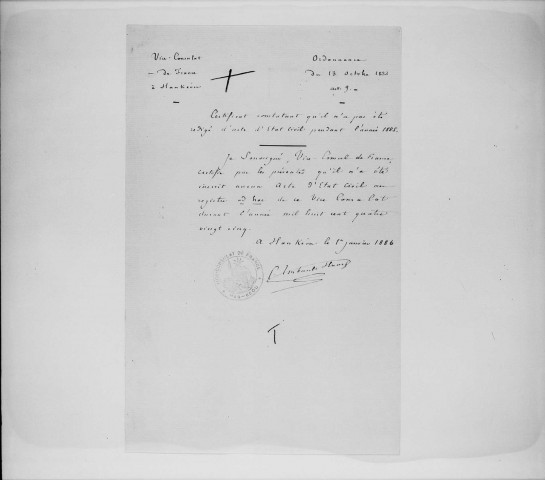 Vice-Consulat
de France
à Hankéou
Ordonnance
du 18 Octobre 1833
art. 9.
Certificat constatant qu'il n'a pas été
rédigé d'acte d'Etat Civil pendant l'année 1885.
Je Soussigné, Vice-Consul de France,
certifie par les présentes qu'il n'a été
inscrit aucun Acte d'Etat Civil au
registre ad hoc de ce Vice Consulat
durant l'année mil huit cent quatre
vingt cinq.
A Hankéou le 1er janvier 1886